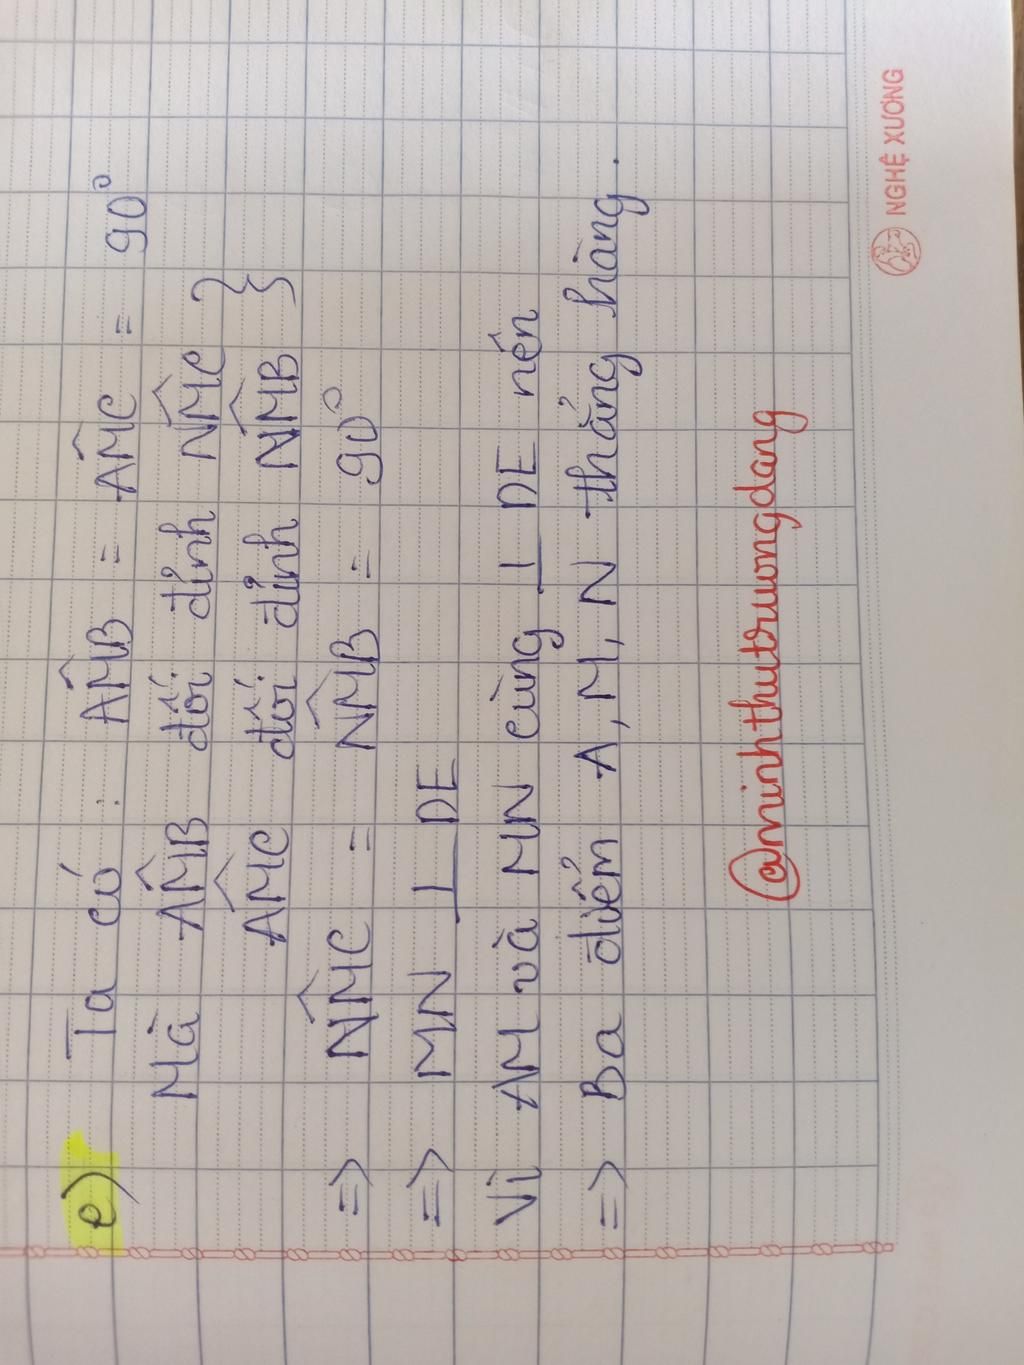 e) Ta có : AM̂B = AM̂C = 90°
Mà AM̂B đối đỉnh NM̂C }
AM̂C đối đỉnh NM̂B }
=> NM̂C = NM̂B = 90°
=> MN ⊥ DE
Vì AM và MN cùng ⊥ DE nên
=> Ba điểm A, M, N thẳng hàng.
@minhthutruongdang
NGHỆ XƯƠNG